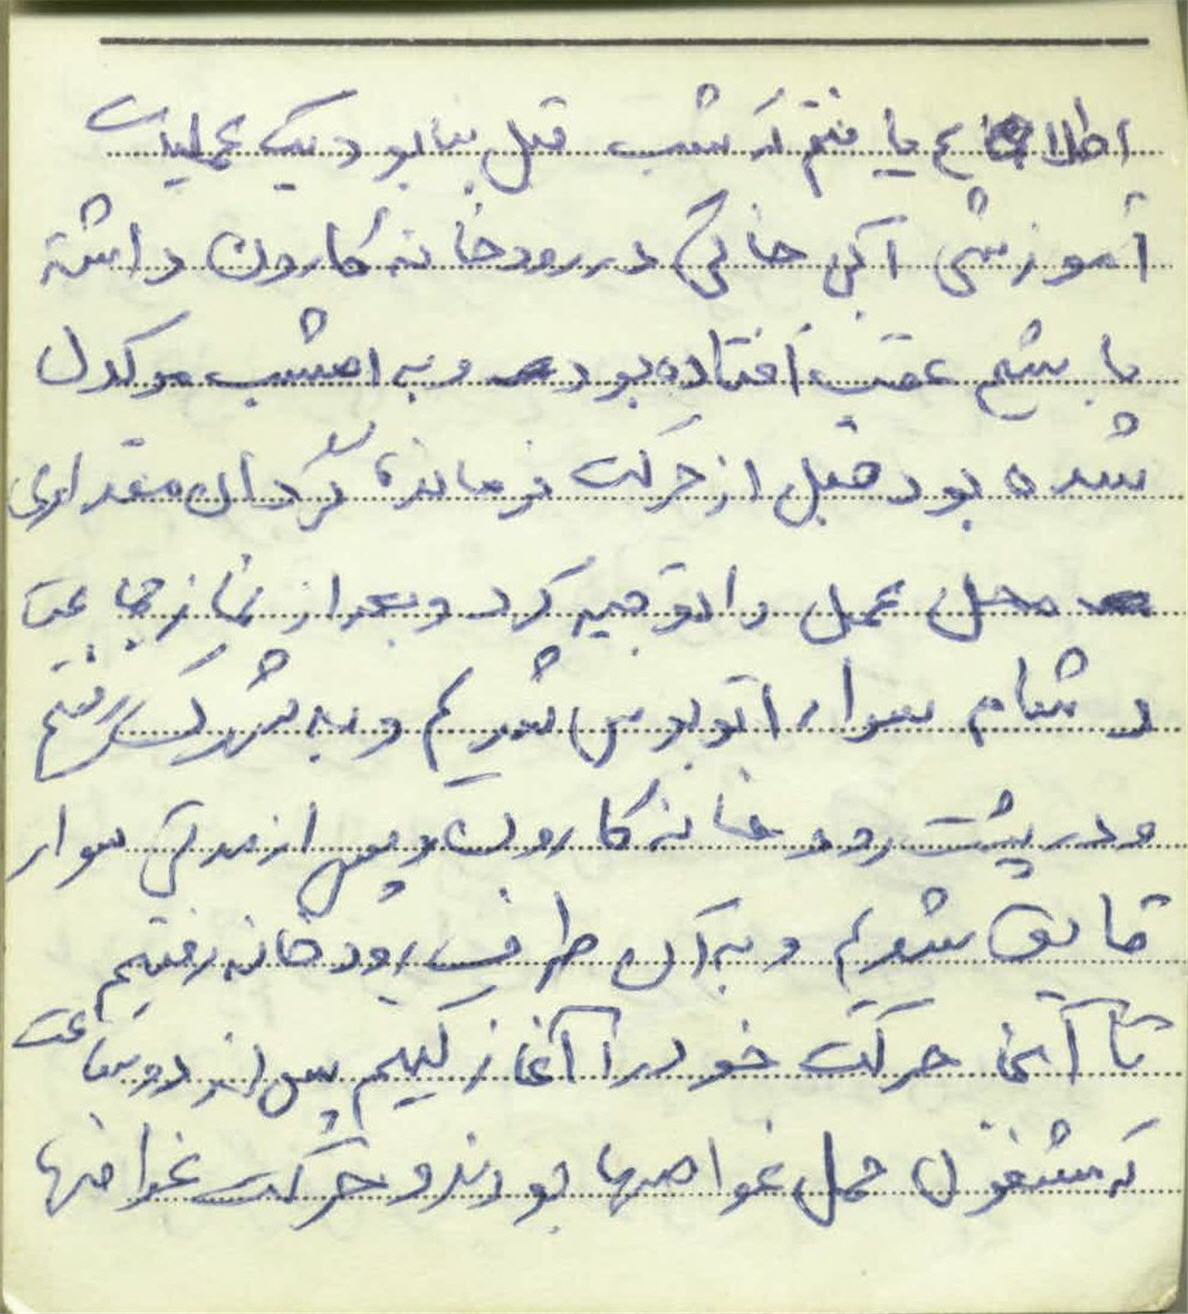 اطلاع یافتم که شب قبل بنا بود یک عملیات
آموزشی آبی خاکی در رودخانه کارون داشته
باشیم عقب افتاده بود و به امشب موکول
شده بود قبل از حرکت فرمانده گردان مقداری
محل عمل را توجیه کرد و بعد از نماز جماعت
و شام سوار اتوبوس شدیم و به شهرک رفتیم
و در پشت رودخانه کارون و پس از مدتی سوار
قایق شدیم و به آن طرف رودخانه رفتیم
تا آنجا حرکت خود را آغاز کنیم پس از دو ساعت
که مشغول حمل غواصها بودند و حرکت غواصها